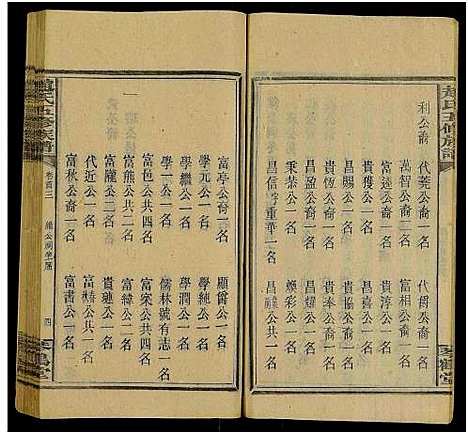 趙氏五修族譜
利公裔
代堯公裔一名
代爵公裔一名
富達公裔一名
富相公裔一名
貴獲公裔一名
貴淳公一名
昌賜公一名
昌喜公一名
貴恆公裔一名
貴協公裔一名
昌盈公裔一名
昌耀公一名
秉泰公一名
煥彩公一名
昌信公裔重華一名
昌公共一名
琴鶴堂
富亭公裔一名
顯爵公一名
學元公一名
學純公一名
學繼公一名
學潤公一名
學一公一名
儒林號有志一名
富色公共四名
富家公共四名
富熊公共二名
富緯公二名
富隴公二名
代近公一名
富疇公共一名
富秋公裔一名
富書公一名
趙氏五修族譜
卷首三
四
琴鶴堂